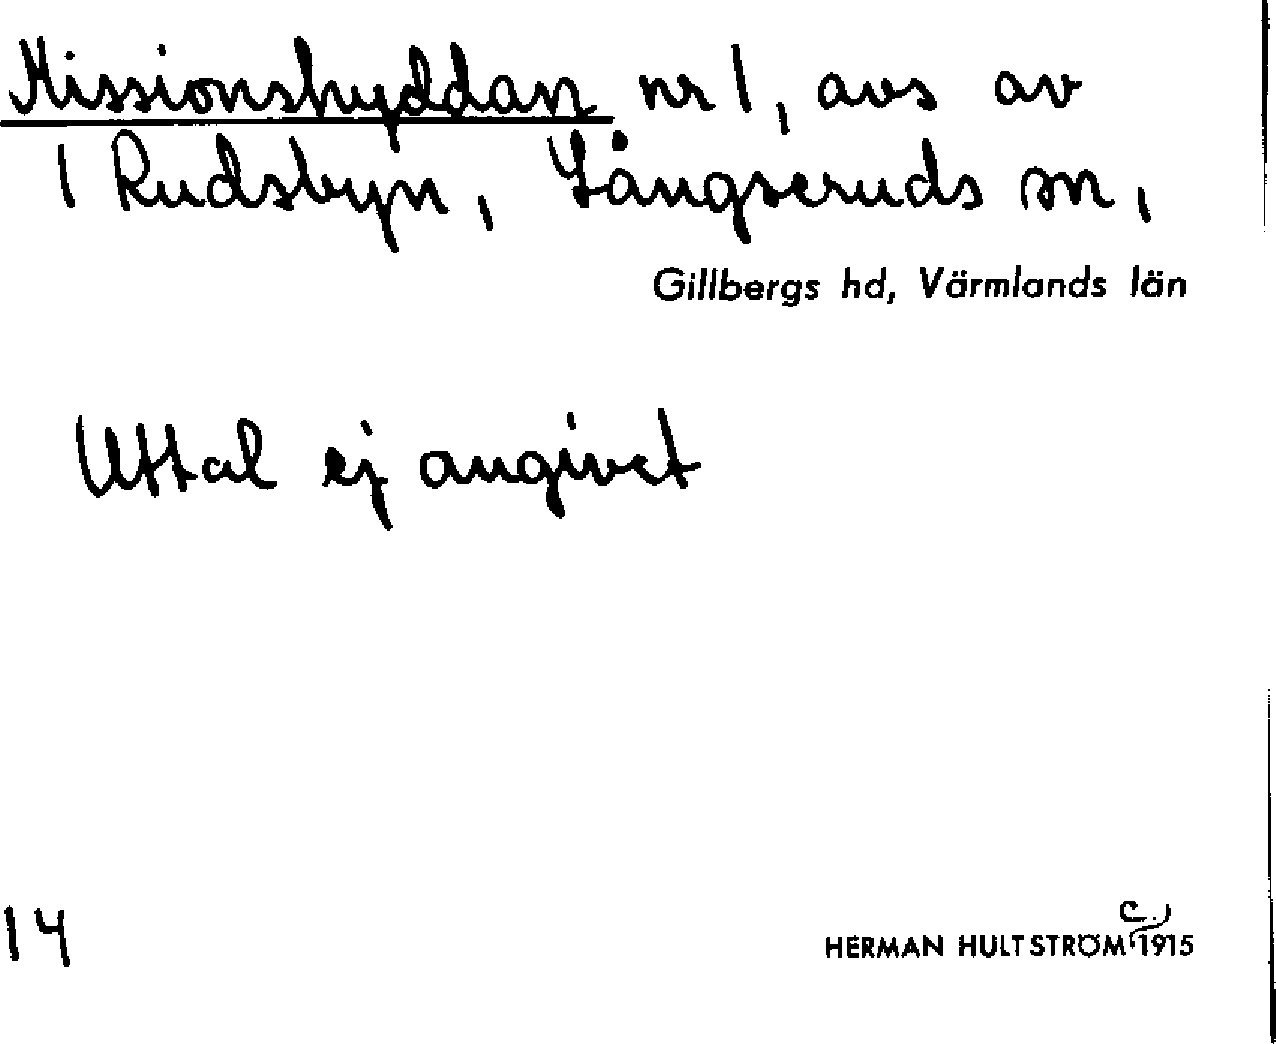 Missionshyddan nr 1, avs av
1 Rudsbyn, Långseruds sn,
Gillbergs hd, Värmlands län
Uttal ej angivet
14
c.
HERMAN HULTSTRÖM 1915